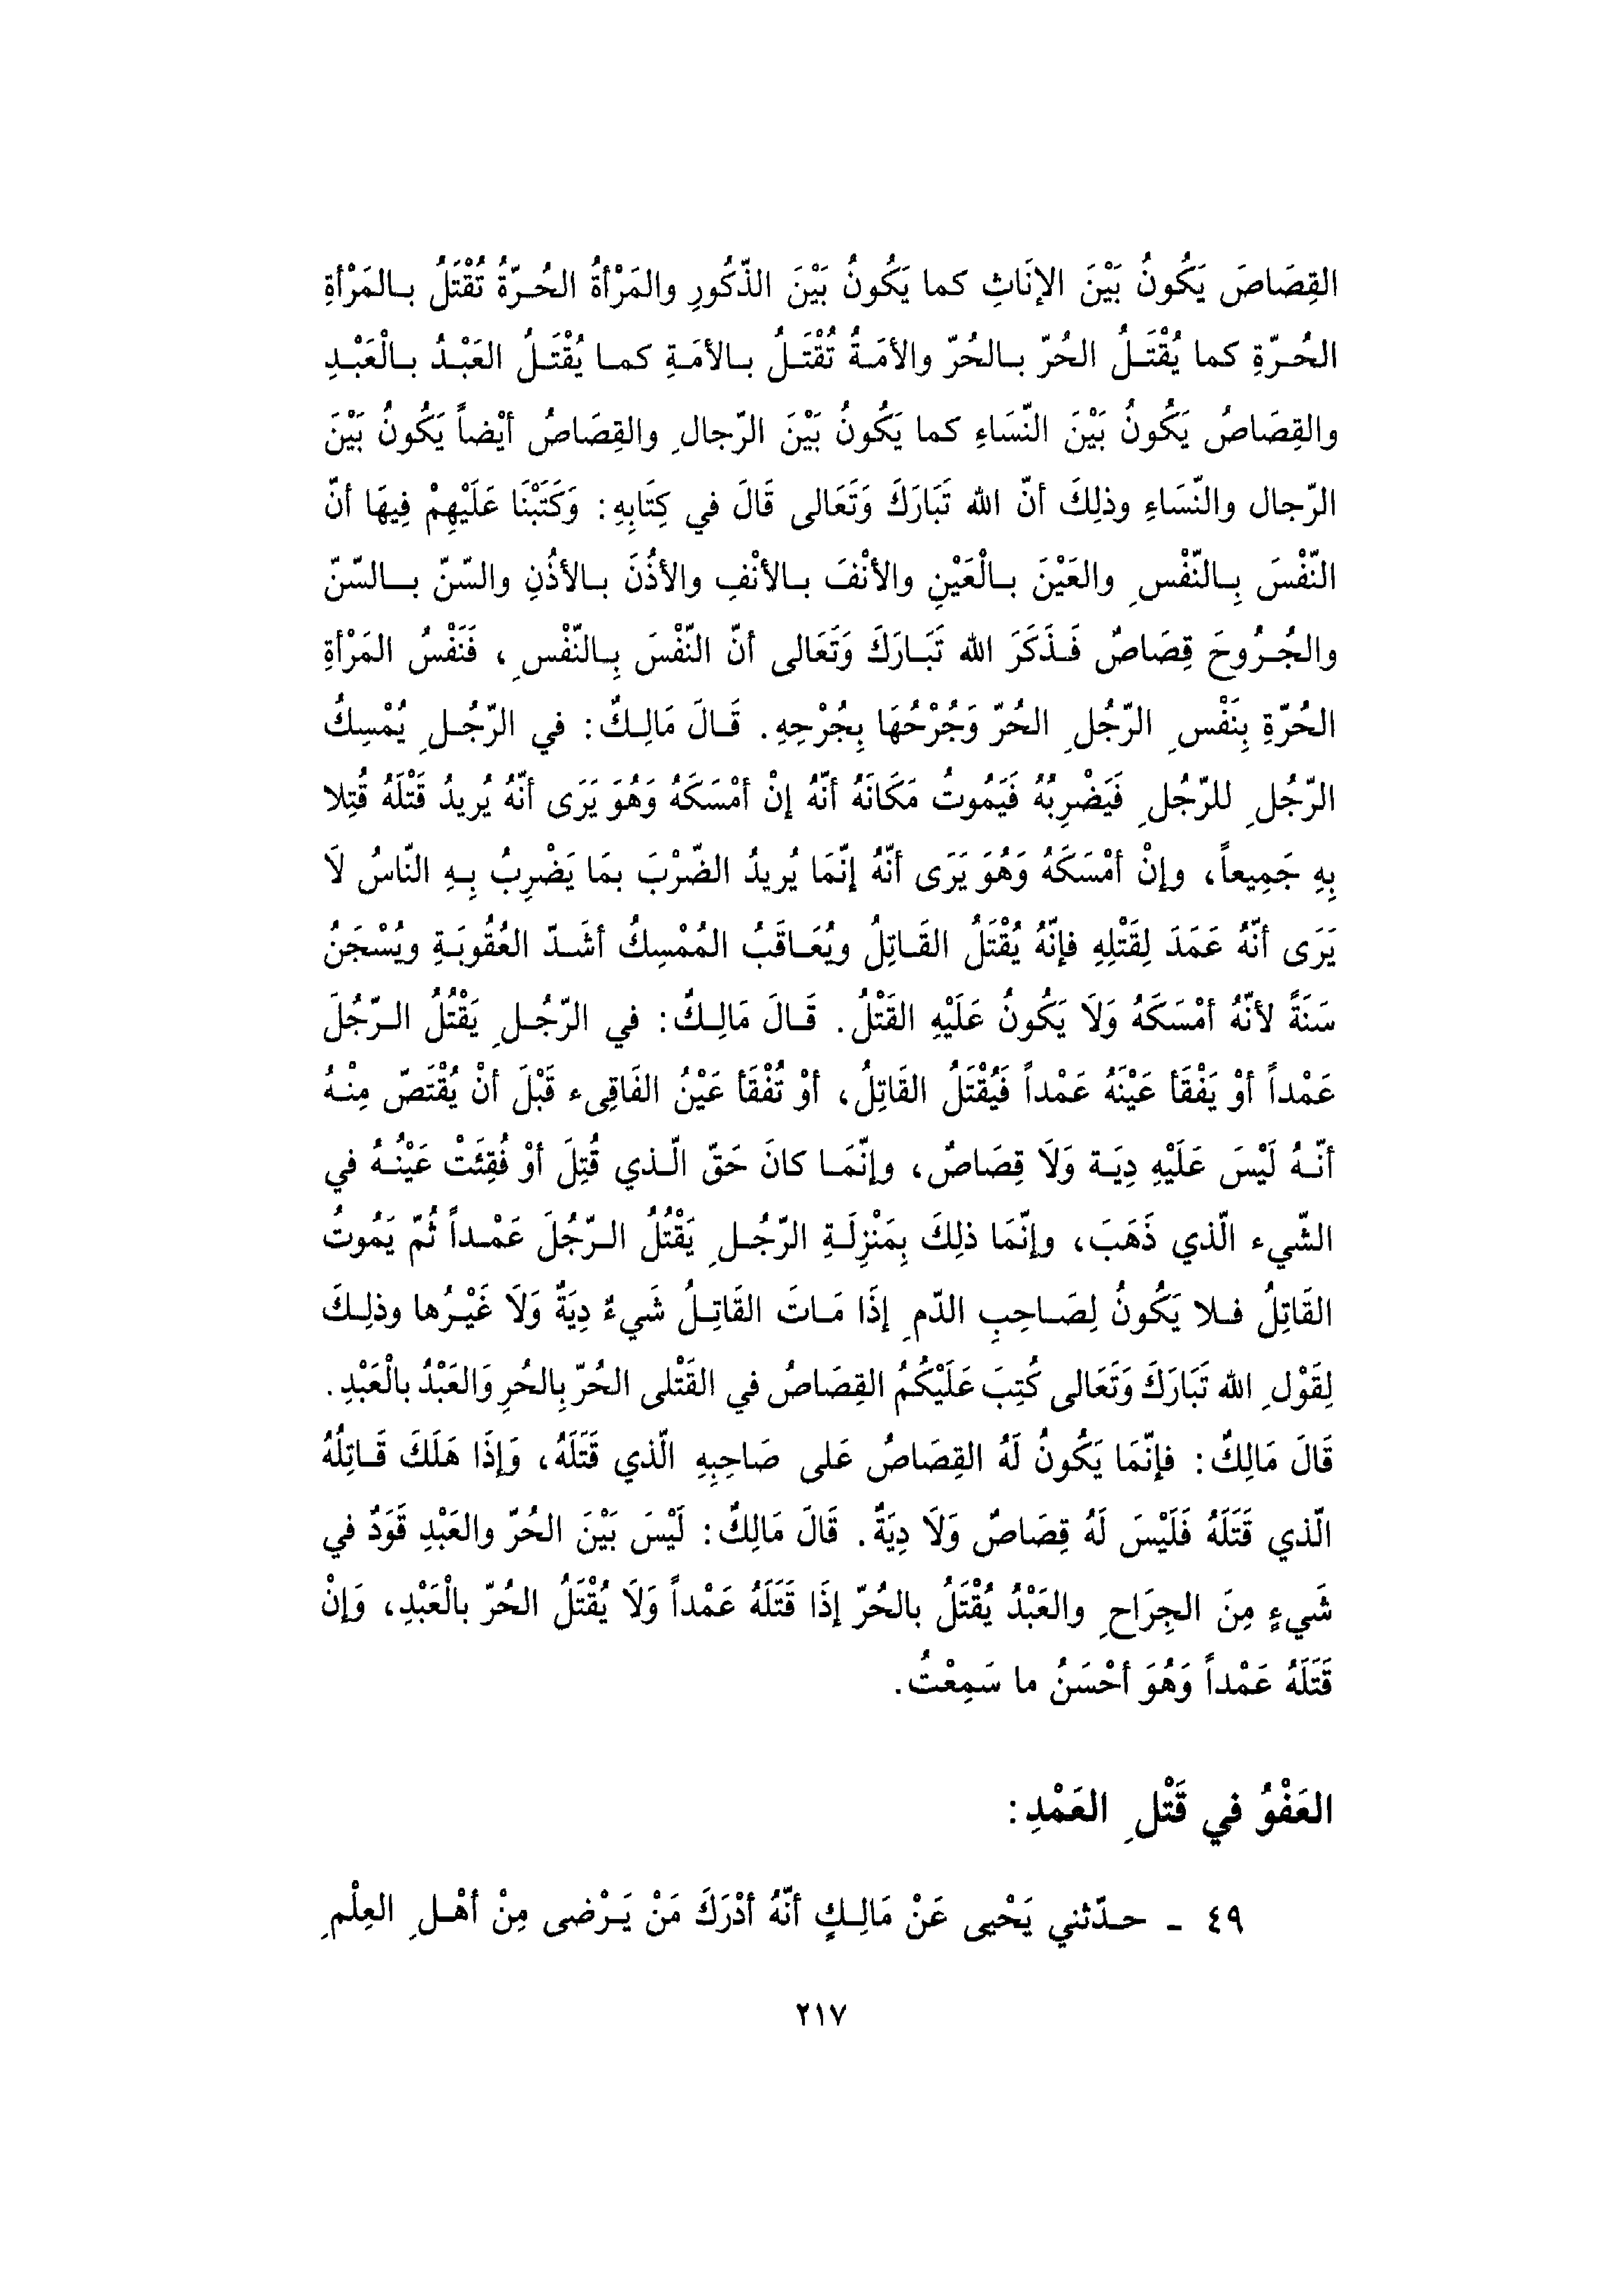 القِصَاصَ يَكُونُ بَيْنَ الإنَاثِ كما يَكُونُ بَيْنَ الذّكُورِ والمَرْأةُ الحُرّةُ تُقْتَلُ بالمَرْأةِ
الحُرّةِ كما يُقْتَلُ الحُرّ بالحُرّ والأمَةُ تُقْتَلُ بالأمَةِ كما يُقْتَلُ العَبْدُ بالْعَبْدِ
والقِصَاصُ يَكُونُ بَيْنَ النّسَاءِ كما يَكُونُ بَيْنَ الرّجالِ والقِصَاصُ أيْضاً يَكُونُ بَيْنَ
الرّجال والنّسَاءِ وذلِكَ أنّ الله تَبَارَكَ وَتَعَالى قَالَ في كِتَابِهِ: وَكَتَبْنَا عَلَيْهِمْ فِيهَا أنّ
النّفْسَ بِالنّفْسِ والعَيْنَ بالْعَيْنِ والأنْفَ بالأنْفِ والأذُنَ بالأذُنِ والسّنّ بالسّنّ
والجُرُوحَ قِصَاصٌ فَذَكَرَ الله تَبَارَكَ وَتَعَالى أنّ النّفْسَ بِالنّفْسِ، فَنَفْسُ المَرْأةِ
الحُرّةِ بِنَفْسِ الرّجُلِ الحُرّ وَجُرْحُهَا بِجُرْحِهِ. قَالَ مَالِكٌ: في الرّجُلِ يُمْسِكُ
الرّجُلِ للرّجُلِ فَيَضْرِبُهُ فَيَمُوتُ مَكَانَهُ أنّهُ إنْ أمْسَكَهُ وَهُوَ يَرَى أنّهُ يُريدُ قَتْلَهُ قُتِلا
بِهِ جَمِيعاً، وإنْ أمْسَكَهُ وَهُوَ يَرَى أنّهُ إنّمَا يُريدُ الضّرْبَ بمَا يَضْرِبُ بِهِ النّاسُ لَا
يَرَى أنّهُ عَمَدَ لِقَتْلِهِ فإنّهُ يُقْتَلُ القَاتِلُ ويُعَاقَبُ المُمْسِكُ أشَدّ العُقُوبَةِ ويُسْجَنُ
سَنَةً لأنّهُ أمْسَكَهُ وَلَا يَكُونُ عَلَيْهِ القَتْلُ. قَالَ مَالِكٌ: في الرّجُلِ يَقْتُلُ الرّجُلَ
عَمْداً أوْ يَفْقَأ عَيْنَهُ عَمْداً فَيُقْتَلُ القَاتِلُ، أوْ تُفْقَأ عَيْنُ الفَاقِىء قَبْلَ أنْ يُقْتَصّ مِنْهُ
أنّهُ لَيْسَ عَلَيْهِ دِيَة وَلَا قِصَاصٌ، وإنّمَا كانَ حَقّ الّذي قُتِلَ أوْ فُقِئَتْ عَيْنُهُ في
الشّيء الّذي ذَهَبَ، وإنّمَا ذلِكَ بِمَنْزِلَةِ الرّجُلِ يَقْتُلُ الرّجُلَ عَمْداً ثُمّ يَمُوتُ
القَاتِلُ فلا يَكُونُ لِصَاحِبِ الدّمِ إذَا مَاتَ القَاتِلُ شَيءٌ دِيَةٌ وَلَا غَيْرُها وذلِكَ
لِقَوْلِ الله تَبَارَكَ وَتَعَالى كُتِبَ عَلَيْكُمُ القِصَاصُ في القَتْلى الحُرّ بِالحُرِ وَالعَبْدُ بالْعَبْدِ.
قَالَ مَالِكٌ: فإنّمَا يَكُونُ لَهُ القِصَاصُ عَلى صَاحِبِهِ الّذي قَتَلَهُ، وَإذَا هَلَكَ قَاتِلُهُ
الّذي قَتَلَهُ فَلَيْسَ لَهُ قِصَاصٌ وَلَا دِيَةٌ. قَالَ مَالِكٌ: لَيْسَ بَيْنَ الحُرّ والعَبْدِ قَوَدٌ في
شَيءٍ مِنَ الجِرَاحِ والعَبْدُ يُقْتَلُ بالحُرّ إذَا قَتَلَهُ عَمْداً وَلَا يُقْتَلُ الحُرّ بالْعَبْدِ، وَإنْ
قَتَلَهُ عَمْداً وَهُوَ أحْسَنُ ما سَمِعْتُ.
العَفْوُ في قَتْلِ العَمْدِ:
٤٩ - حدّثني يَحْيى عَنْ مَالِكٍ أنّهُ أدْرَكَ مَنْ يَرْضى مِنْ أهْلِ العِلْمِ
٢١٧